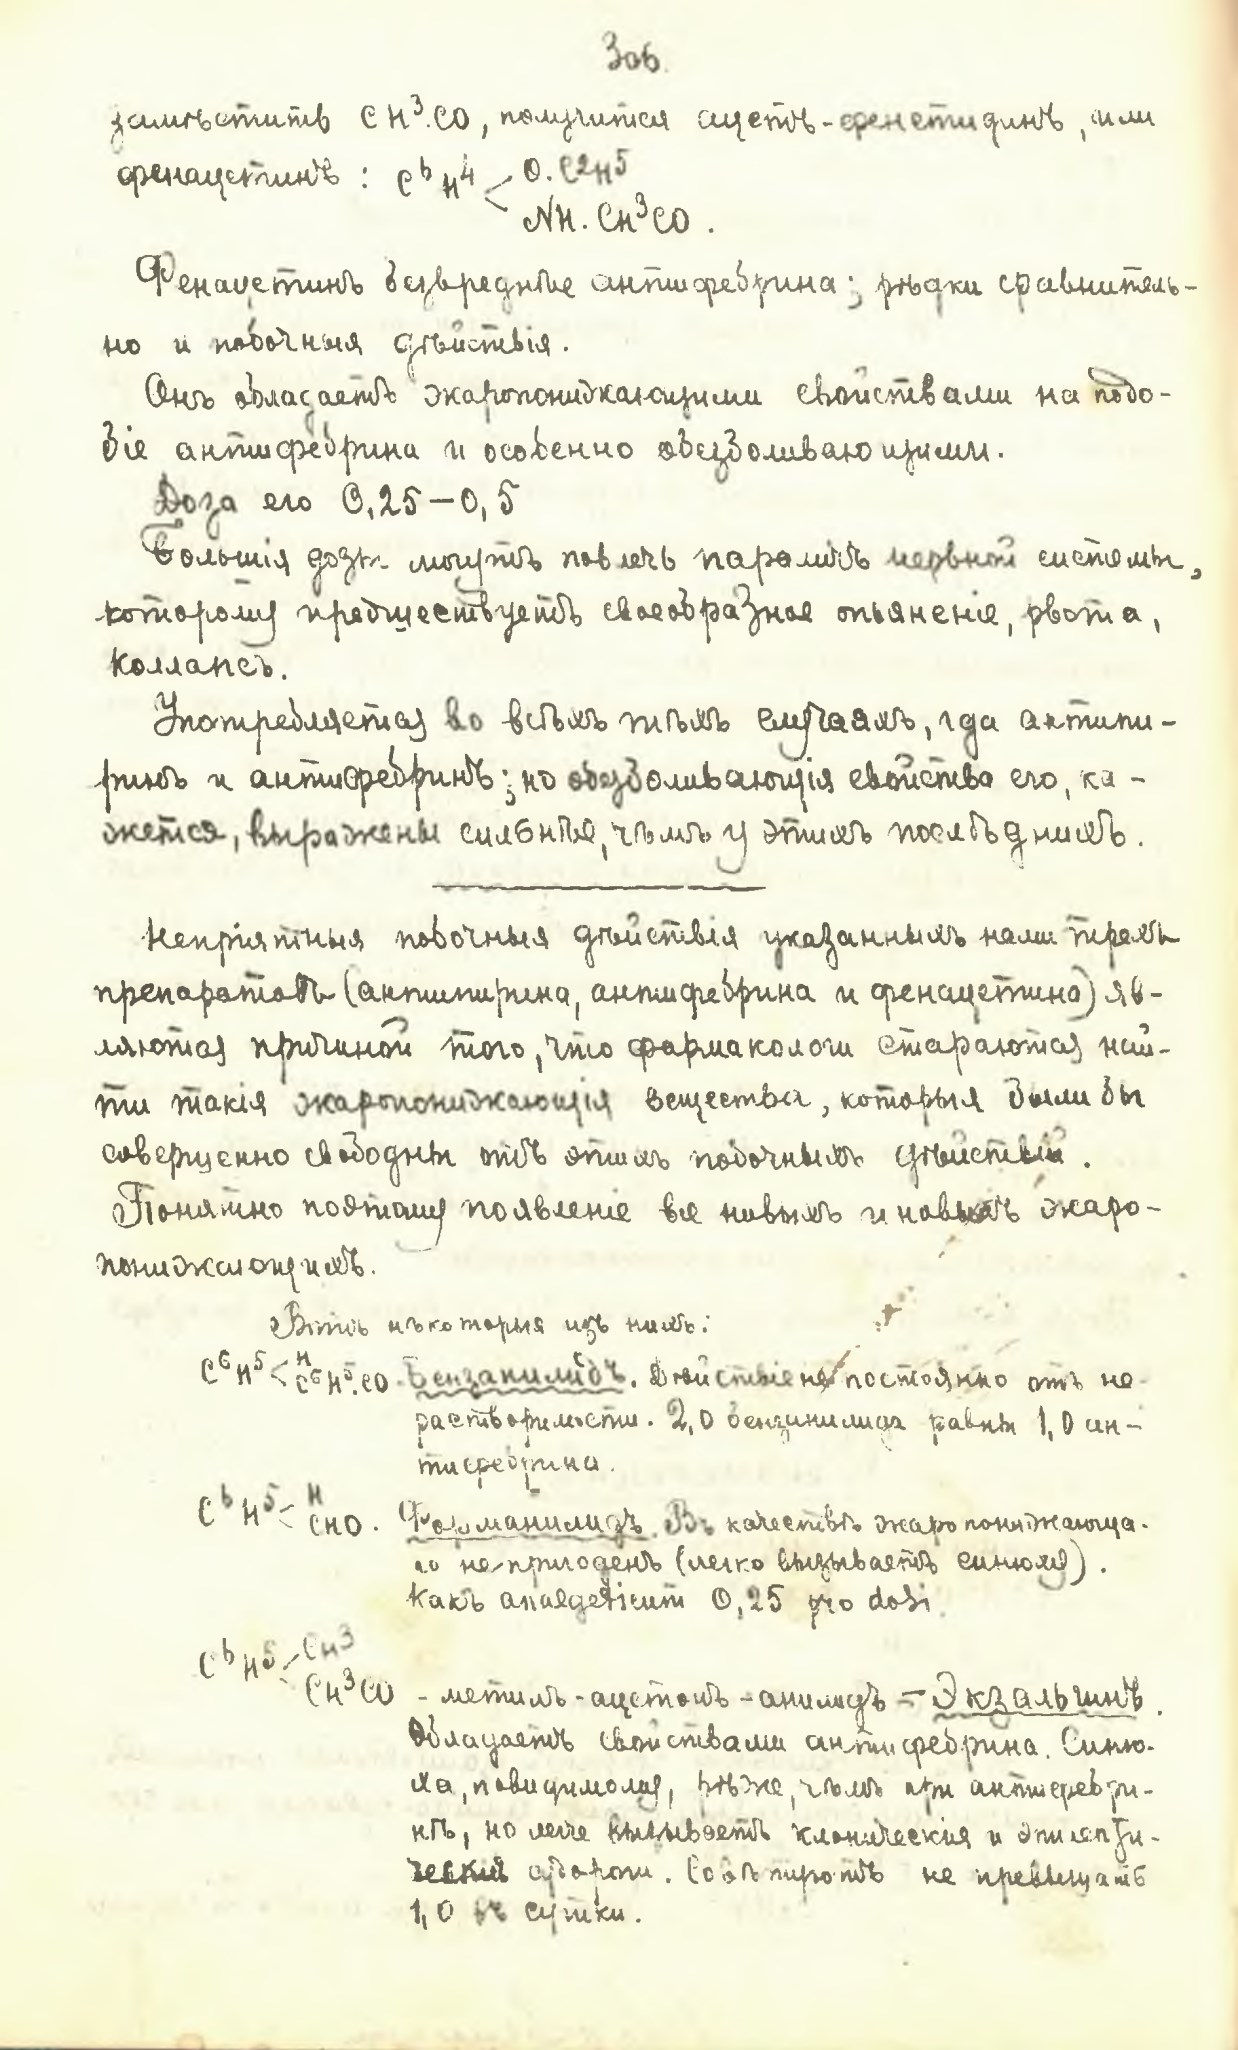 306.
замѣстить CH³.CO, получится ацетъ-фенетидинъ, или
фенацетинъ: C⁶H⁴ < O.C2H⁵
NH.CH³CO.
Фенацетинъ безвреднѣе антифебрина; рѣдки сравнитель-
но и побочныя дѣйствія.
Онъ обладаетъ жаропонижающими свойствами на подо-
біе антифебрина и особенно обезболивающими.
Доза его 0,25—0,5
Большія дозы могутъ повлечь параличъ нервной системы,
которому предшествуетъ своеобразное опьяненіе, рвота,
коллапсъ.
Употребляется во всѣхъ тѣхъ случаяхъ, гдѣ антипи-
ринъ и антифебринъ; но обезболивающія свойства его, ка-
жется, выражены сильнѣе, чѣмъ у этихъ послѣднихъ.
Непріятныя побочныя дѣйствія указанныхъ нами трехъ
препаратовъ (антипирина, антифебрина и фенацетина) яв-
ляются причиной того, что фармакологи стараются най-
ти такія жаропонижающія вещества, которыя были бы
совершенно свободны отъ этихъ побочныхъ дѣйствій.
Понятно поэтому появленіе все новыхъ и новыхъ жаро-
понижающихъ.
Вотъ нѣкоторыя изъ нихъ:
C⁶H⁵ < H
C⁶H⁵.CO - Бензанилидъ. Дѣйствіе не постоянно отъ не-
растворимости. 2,0 бензанилида равны 1,0 ан-
тифебрина.
C⁶H⁵ < H
CHO. Форманилидъ. Въ качествѣ жаропонижающа-
го не пригоденъ (легко вызываетъ синюху).
Какъ analgeticum 0,25 pro dosi.
C⁶H⁵ < CH³
CH³CO - метилъ-ацетонъ-анилидъ = Экзальгинъ.
Обладаетъ свойствами антифебрина. Синю-
ха, повидимому, рѣже, чѣмъ при антифебри-
нѣ, но легче вызываетъ клоническія и эпилепти-
ческія судороги. Совѣтуютъ не превышать
1,0 въ сутки.